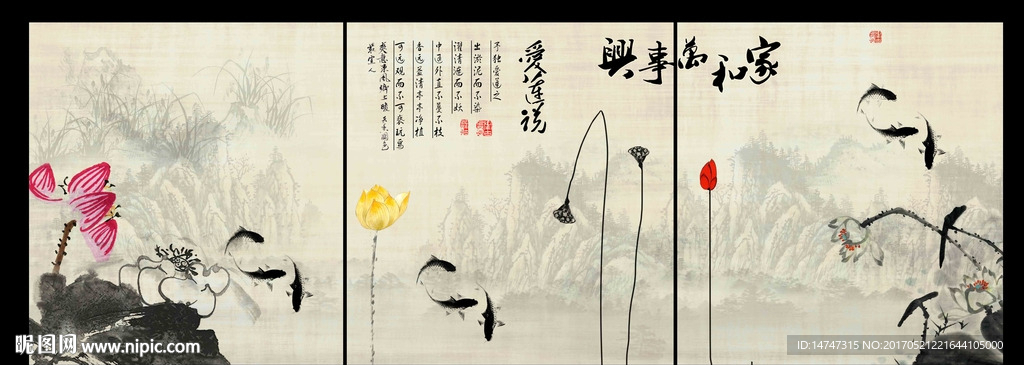 家和萬事興
愛莲说
不独愛莲之
出淤泥而不染
濯清涟而不妖
中通外直不蔓不枝
香远益清亭亭净植
可远观而不可亵玩焉
昵图网 www.nipic.com
ID:14747315 NO:20170521221644105000